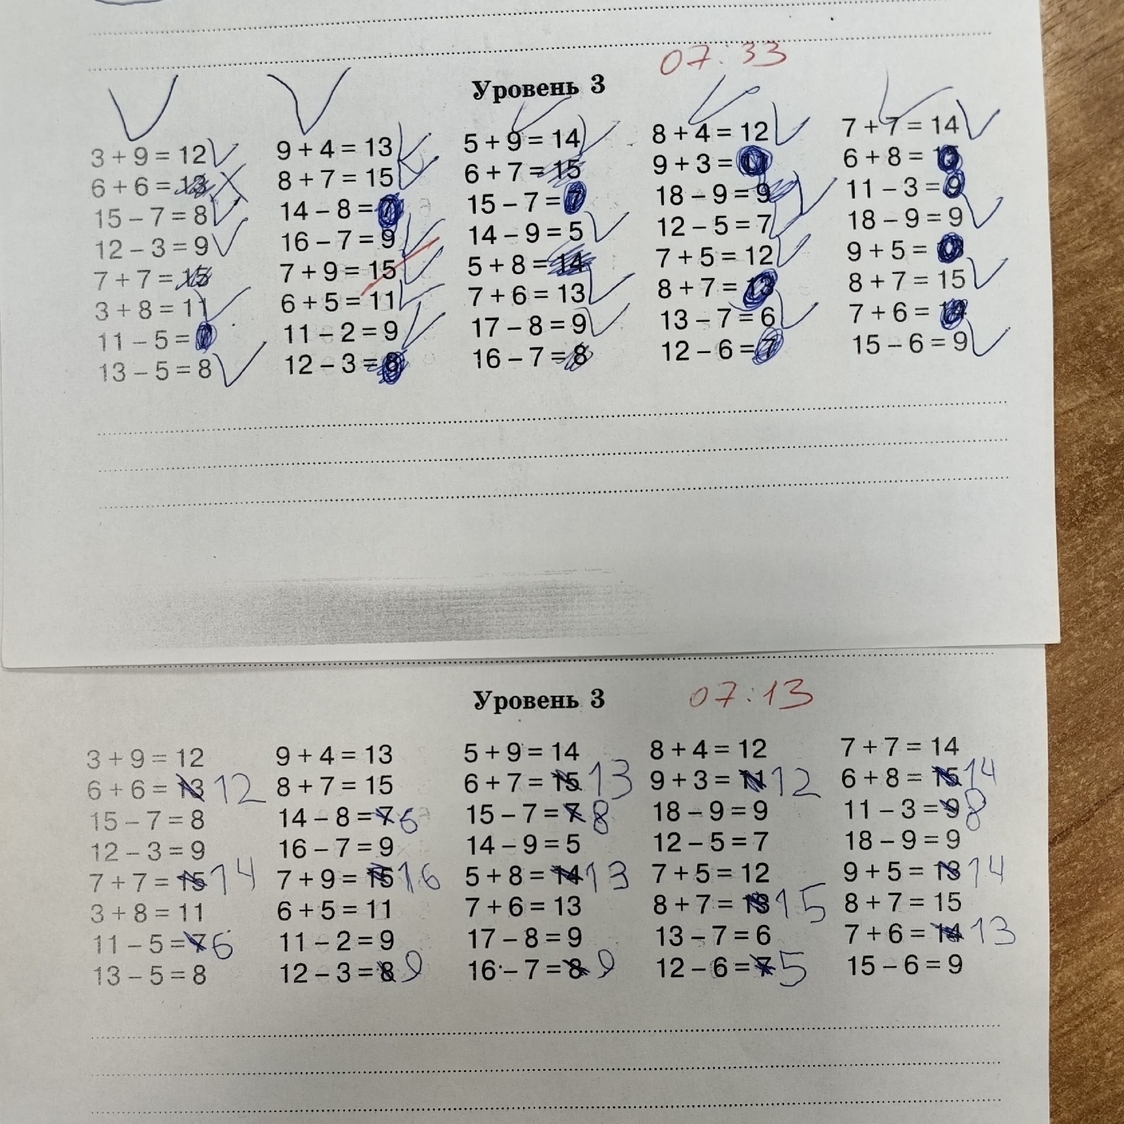 07:33
Уровень 3
3 + 9 = 12 9 + 4 = 13 5 + 9 = 14 8 + 4 = 12 7 + 7 = 14
6 + 6 = 13 8 + 7 = 15 6 + 7 = 15 9 + 3 = 11 6 + 8 = 15
15 – 7 = 8 14 – 8 = 7 15 – 7 = 7 18 – 9 = 9 11 – 3 = 9
12 – 3 = 9 16 – 7 = 9 14 – 9 = 5 12 – 5 = 7 18 – 9 = 9
7 + 7 = 15 7 + 9 = 15 5 + 8 = 14 7 + 5 = 12 9 + 5 = 13
3 + 8 = 11 6 + 5 = 11 7 + 6 = 13 8 + 7 = 13 8 + 7 = 15
11 – 5 = 7 11 – 2 = 9 17 – 8 = 9 13 – 7 = 6 7 + 6 = 14
13 – 5 = 8 12 – 3 = 8 16 – 7 = 8 12 – 6 = 7 15 – 6 = 9
Уровень 3 07:13
3 + 9 = 12 9 + 4 = 13 5 + 9 = 14 8 + 4 = 12 7 + 7 = 14
6 + 6 = 13 12 8 + 7 = 15 6 + 7 = 15 13 9 + 3 = 11 12 6 + 8 = 15 14
15 – 7 = 8 14 – 8 = 7 6 15 – 7 = 7 8 18 – 9 = 9 11 – 3 = 9 8
12 – 3 = 9 16 – 7 = 9 14 – 9 = 5 12 – 5 = 7 18 – 9 = 9
7 + 7 = 15 14 7 + 9 = 15 16 5 + 8 = 14 13 7 + 5 = 12 9 + 5 = 13 14
3 + 8 = 11 6 + 5 = 11 7 + 6 = 13 8 + 7 = 13 15 8 + 7 = 15
11 – 5 = 7 6 11 – 2 = 9 17 – 8 = 9 13 – 7 = 6 7 + 6 = 14 13
13 – 5 = 8 12 – 3 = 8 9 16 – 7 = 8 9 12 – 6 = 7 5 15 – 6 = 9